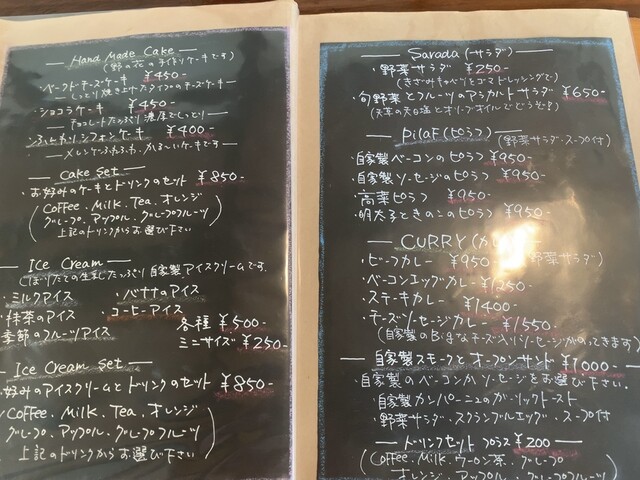 Hand Made Cake
(野の花の手作りケーキです)
・ベークドチーズケーキ ¥450-
しっとり焼き上げたタイプのチーズケーキ
・ショコラケーキ ¥450-
チョコレートたっぷり濃厚でしっとり
・ふんわりシフォンケーキ ¥400-
メレンゲふわふわ、かる〜いケーキです
Cake Set
・お好みのケーキとドリンクのセット ¥850-
(Coffee. Milk. Tea. オレンジ
グレープ. アップル. グレープフルーツ
上記のドリンクからお選び下さい)
Ice Cream
(しぼりたての生ミルクたっぷり 自家製アイスクリームです。
・ミルクアイス ・バナナのアイス
・抹茶のアイス ・コーヒーアイス
季節のフルーツアイス 各種 ¥500-
ミニサイズ ¥250-
Ice Cream Set
お好みのアイスクリームとドリンクのセット ¥850-
Coffee. Milk. Tea. オレンジ
グレープ. アップル. グレープフルーツ
上記のドリンクからお選び下さい
Sarada (サラダ)
・野菜サラダ ¥250-
(きざみキャベツとゴマドレッシングで)
・旬野菜とフルーツのアラカルトサラダ ¥650-
(天草の天日塩とオリーブオイルでどうぞ!)
Pilaf (ピラフ) (野菜サラダ・スープ付)
・自家製ベーコンのピラフ ¥950-
・自家製ソーセージのピラフ ¥950-
・高菜ピラフ ¥950-
・明太子ときのこのピラフ ¥950-
CURRY (カレー)
・ビーフカレー ¥950- (野菜サラダ)
・ベーコンエッグカレー ¥1250-
・ステーキカレー ¥1400-
・チーズソーセージカレー ¥1550-
(自家製のBigなチーズ入りソーセージがのってきます)
自家製スモークとオープンサンド ¥1000-
・自家製のベーコンかソーセージをお選び下さい。
自家製カンパーニュのガーリックトースト
野菜サラダ・スクランブルエッグ・スープ付
ドリンクセット プラス ¥200
(Coffee. Milk. ウーロン茶. グレープ
オレンジ. アップル. グレープフルーツ